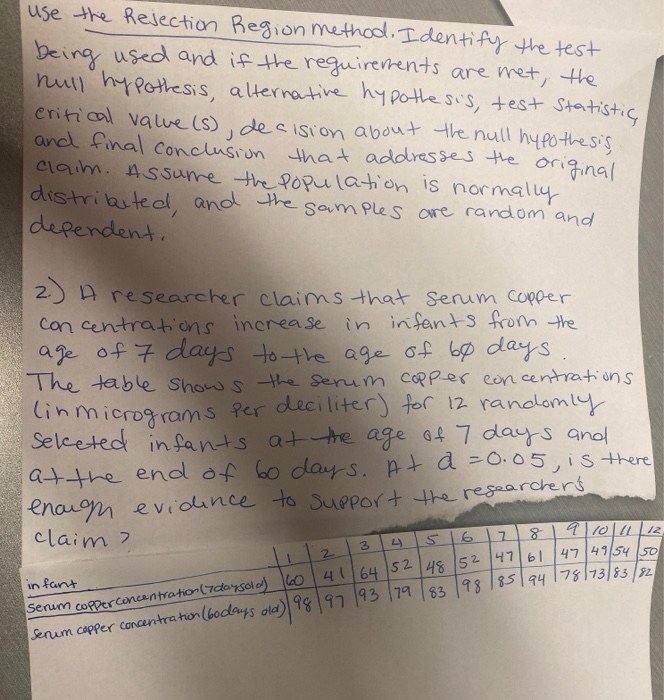 use the Rejection Region method. Identify the test
being used and if the requirements are met, the
null hypothesis, alternative hypothesis, test statistic,
critical value(s), decision about the null hypothesis,
and final conclusion that addresses the original
claim. Assume the population is normally
distributed, and the samples are random and
dependent.
2) A researcher claims that serum copper
concentrations increase in infants from the
age of 7 days to the age of 60 days.
The table shows the serum copper concentrations
(in micrograms per deciliter) for 12 randomly
selceted infants at the age of 7 days and
at the end of 60 days. At α = 0.05, is there
enough evidence to support the researcher's
claim?
infant 1 2 3 4 5 6 7 8 9 10 11 12
Serum copper concentration (7 days old) 60 41 64 52 48 52 47 61 47 49 54 50
Serum copper concentration (60 days old) 98 97 93 79 83 98 85 94 78 73 83 82